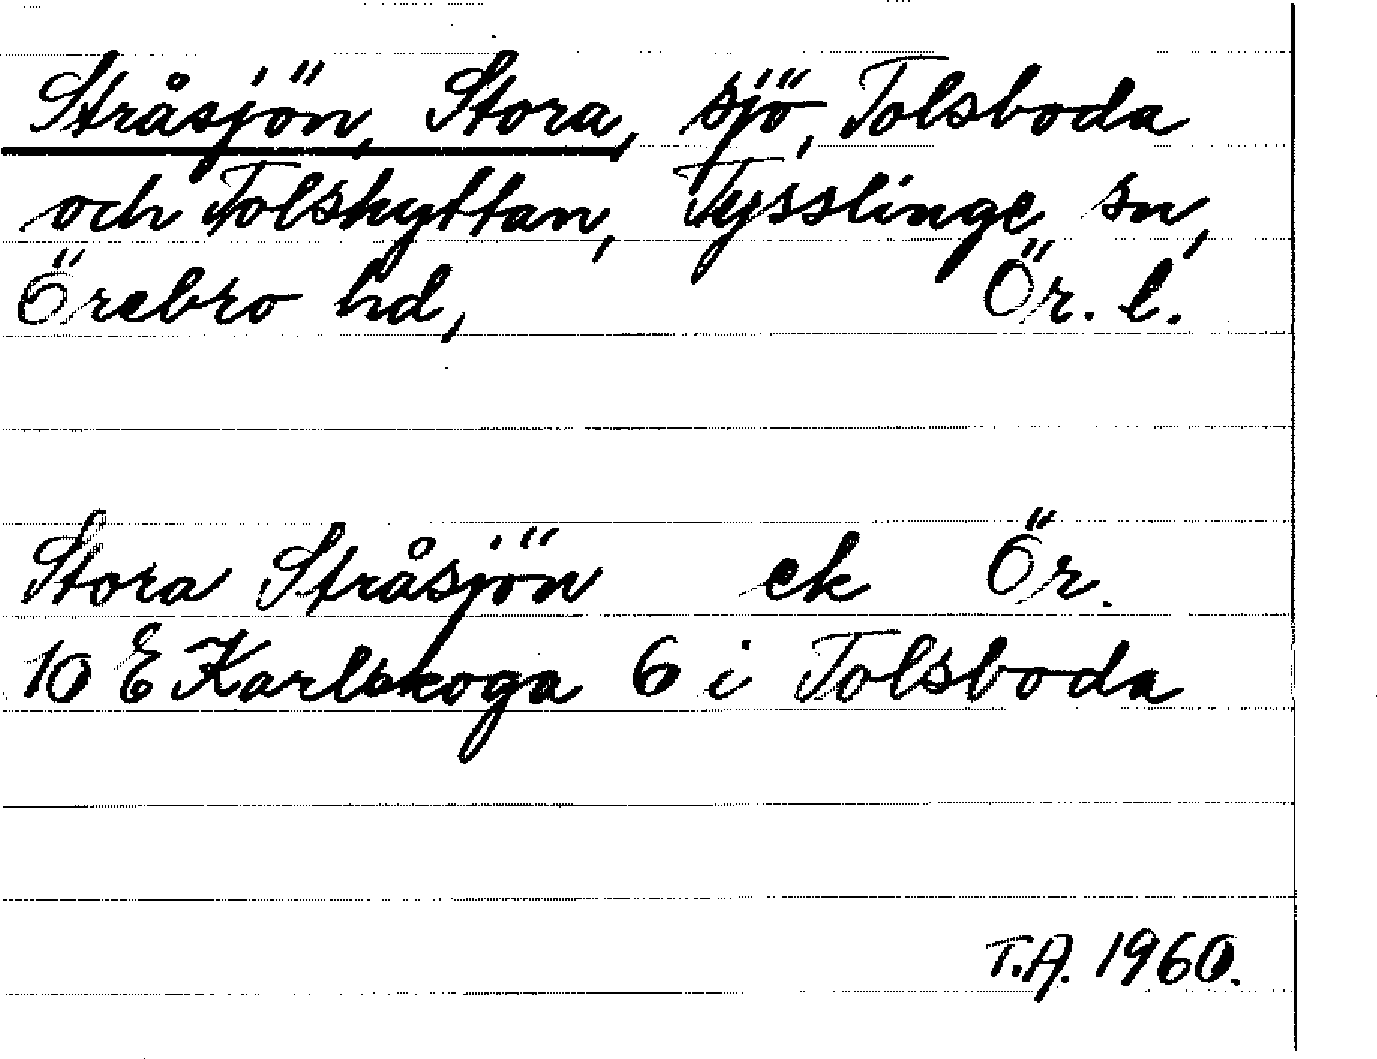 Stråsjön, Stora, sjö, Tolsboda
och Tolshyttan, Tysslinge sn,
Örebro hd, Ör. l.
Stora Stråsjön ek Ör.
10 E Karlskoga 6 i Tolsboda
T.A. 1960.